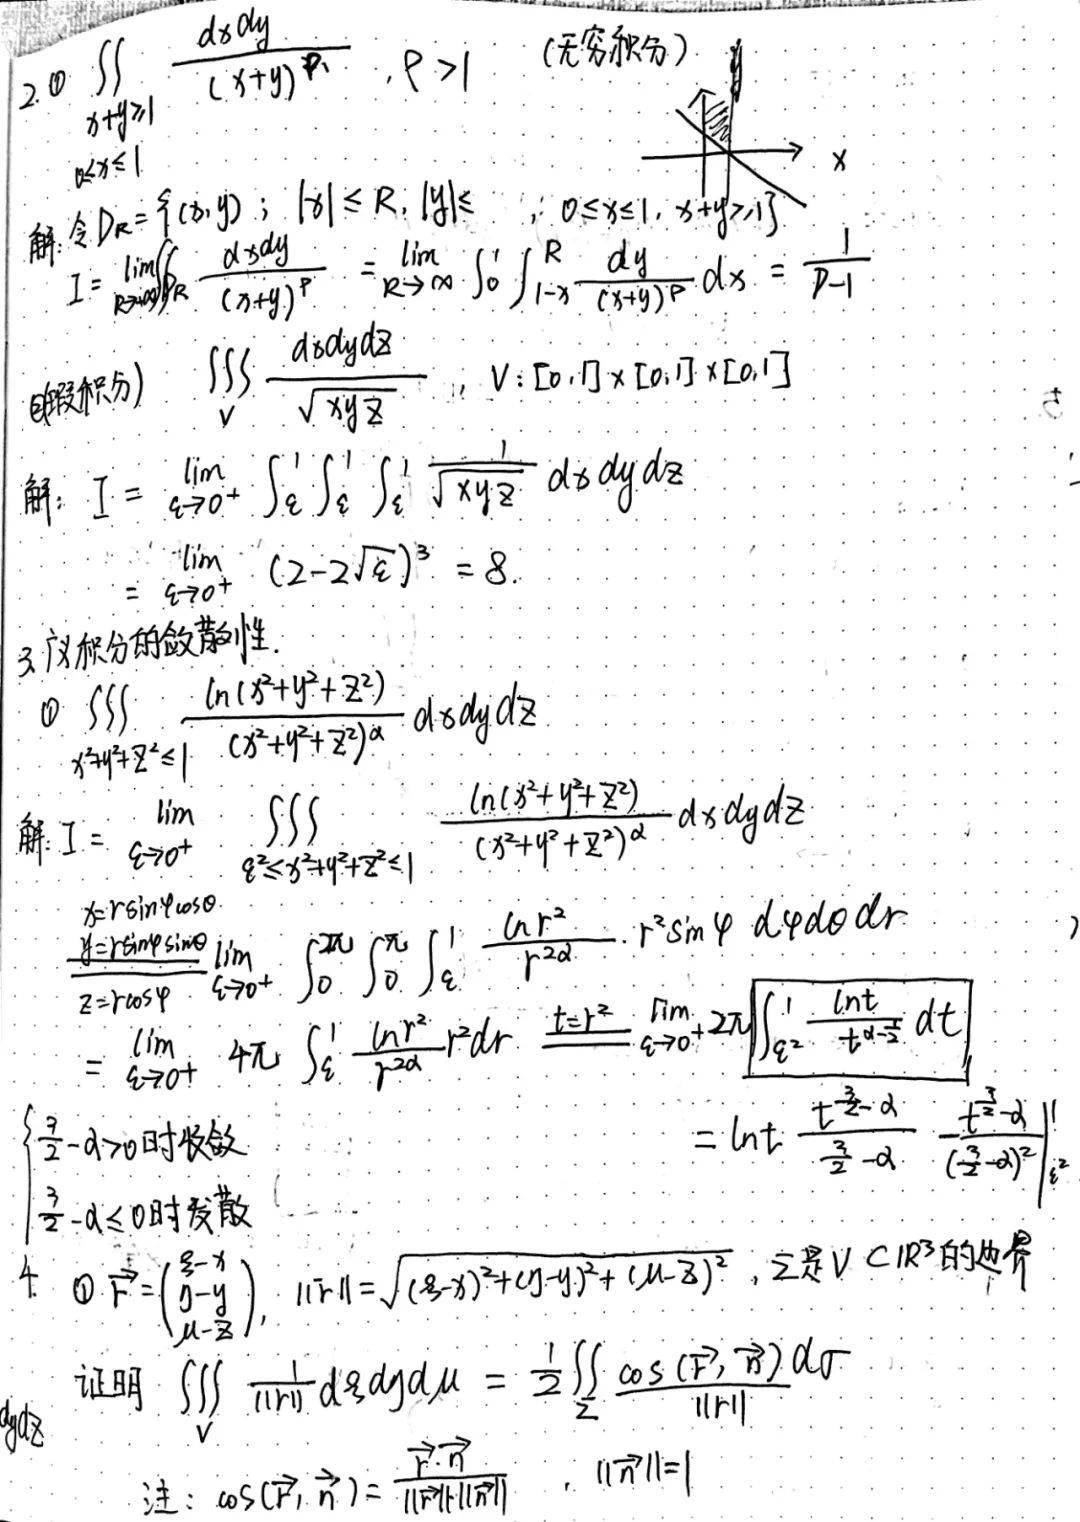 2.① ∬_{x+y≥1, 0≤x≤1} dxdy/(x+y)^p, , p>1 (无穷积分)
y
x
解: 令D_R={(x,y); |x|≤R, |y|≤ , 0≤x≤1, x+y≥1}
I = lim_{R→+∞} ∬_{D_R} dxdy/(x+y)^p = lim_{R→∞} ∫_0^1 ∫_{1-x}^R dy/(x+y)^p dx = 1/(p-1)
②(瑕积分) ∭_V dxdydz/√(xyz) , V:[0,1]×[0,1]×[0,1]
解: I = lim_{ε→0+} ∫_ε^1 ∫_ε^1 ∫_ε^1 1/√(xyz) dxdydz
= lim_{ε→0+} (2-2√ε)^3 = 8.
3.广义积分的敛散性.
① ∭_{x²+y²+z²≤1} ln(x²+y²+z²)/(x²+y²+z²)^α dxdydz
解: I = lim_{ε→0+} ∭_{ε²≤x²+y²+z²≤1} ln(x²+y²+z²)/(x²+y²+z²)^α dxdydz
x=rsinφcosθ
y=rsinφsinθ
z=rcosφ
lim_{ε→0+} ∫_0^{2π} ∫_0^π ∫_ε^1 ln r²/r^{2α} · r²sinφ dφdθdr
= lim_{ε→0+} 4π ∫_ε^1 ln r²/r^{2α} r²dr t=r² lim_{ε→0+} 2π ∫_{ε²}^1 lnt/t^{α-1/2} dt
= lnt t^{3/2-α}/(3/2-α) t^{3/2-α}/(3/2-α)² |_{ε²}^1
{ 3/2-α>0时收敛
3/2-α≤0时发散
4. ① r⃗=(ξ-x, η-y, μ-z), ||r||=√((ξ-x)²+(η-y)²+(μ-z)²) , Σ是V⊂ℝ³的边界
证明 ∭_V 1/||r|| dξdηdμ = 1/2 ∬_Σ cos(r⃗,n⃗)dσ/||r||
dydz
注: cos(r⃗,n⃗)= r⃗·n⃗/||r⃗||·||n⃗|| , ||n⃗||=1